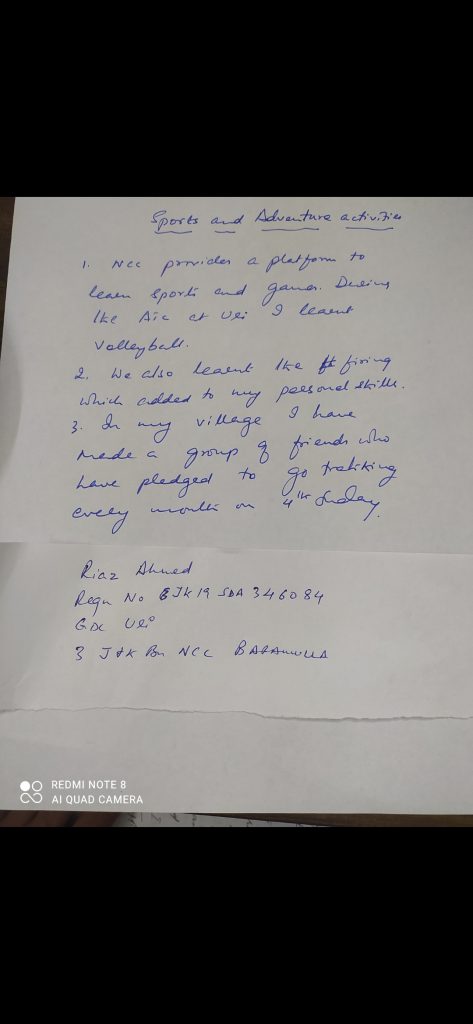 Sports and Adventure activities
1. NCC provides a platform to
learn sports and games. During
the at Uri I learnt
Volleyball.
2. We also learnt the firing
which added to my personal skills.
3. In my village I have
made a group of friends who
have pledged to go trekking
every month on 4th Sunday.
Riaz Ahmed
Regn No JK19 SDA 346084
GDC Uri
3 J&K Bn NCC BARAMULLA
REDMI NOTE 8
AI QUAD CAMERA